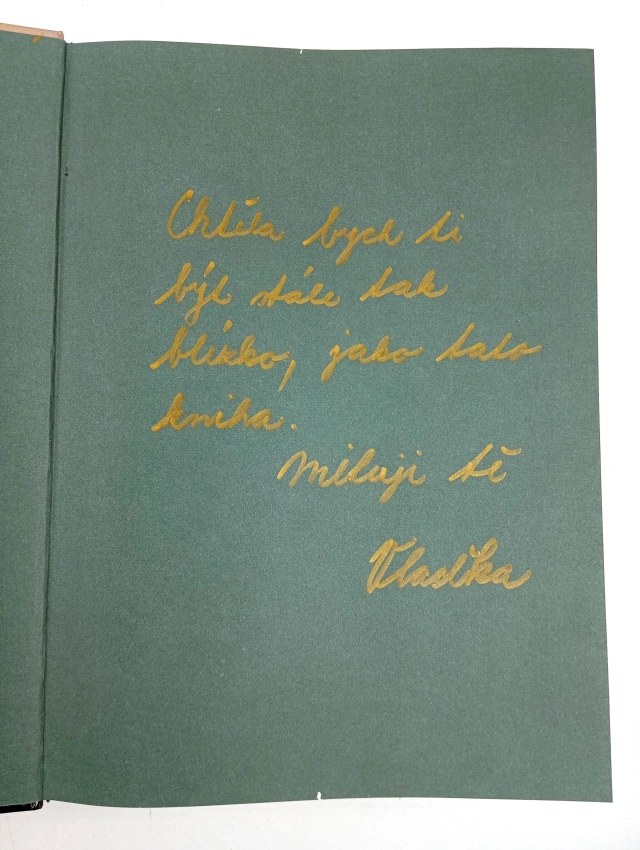 Chtěla bych ti
být stále tak
blízko, jako tato
kniha.
Miluji tě
Vlaďka